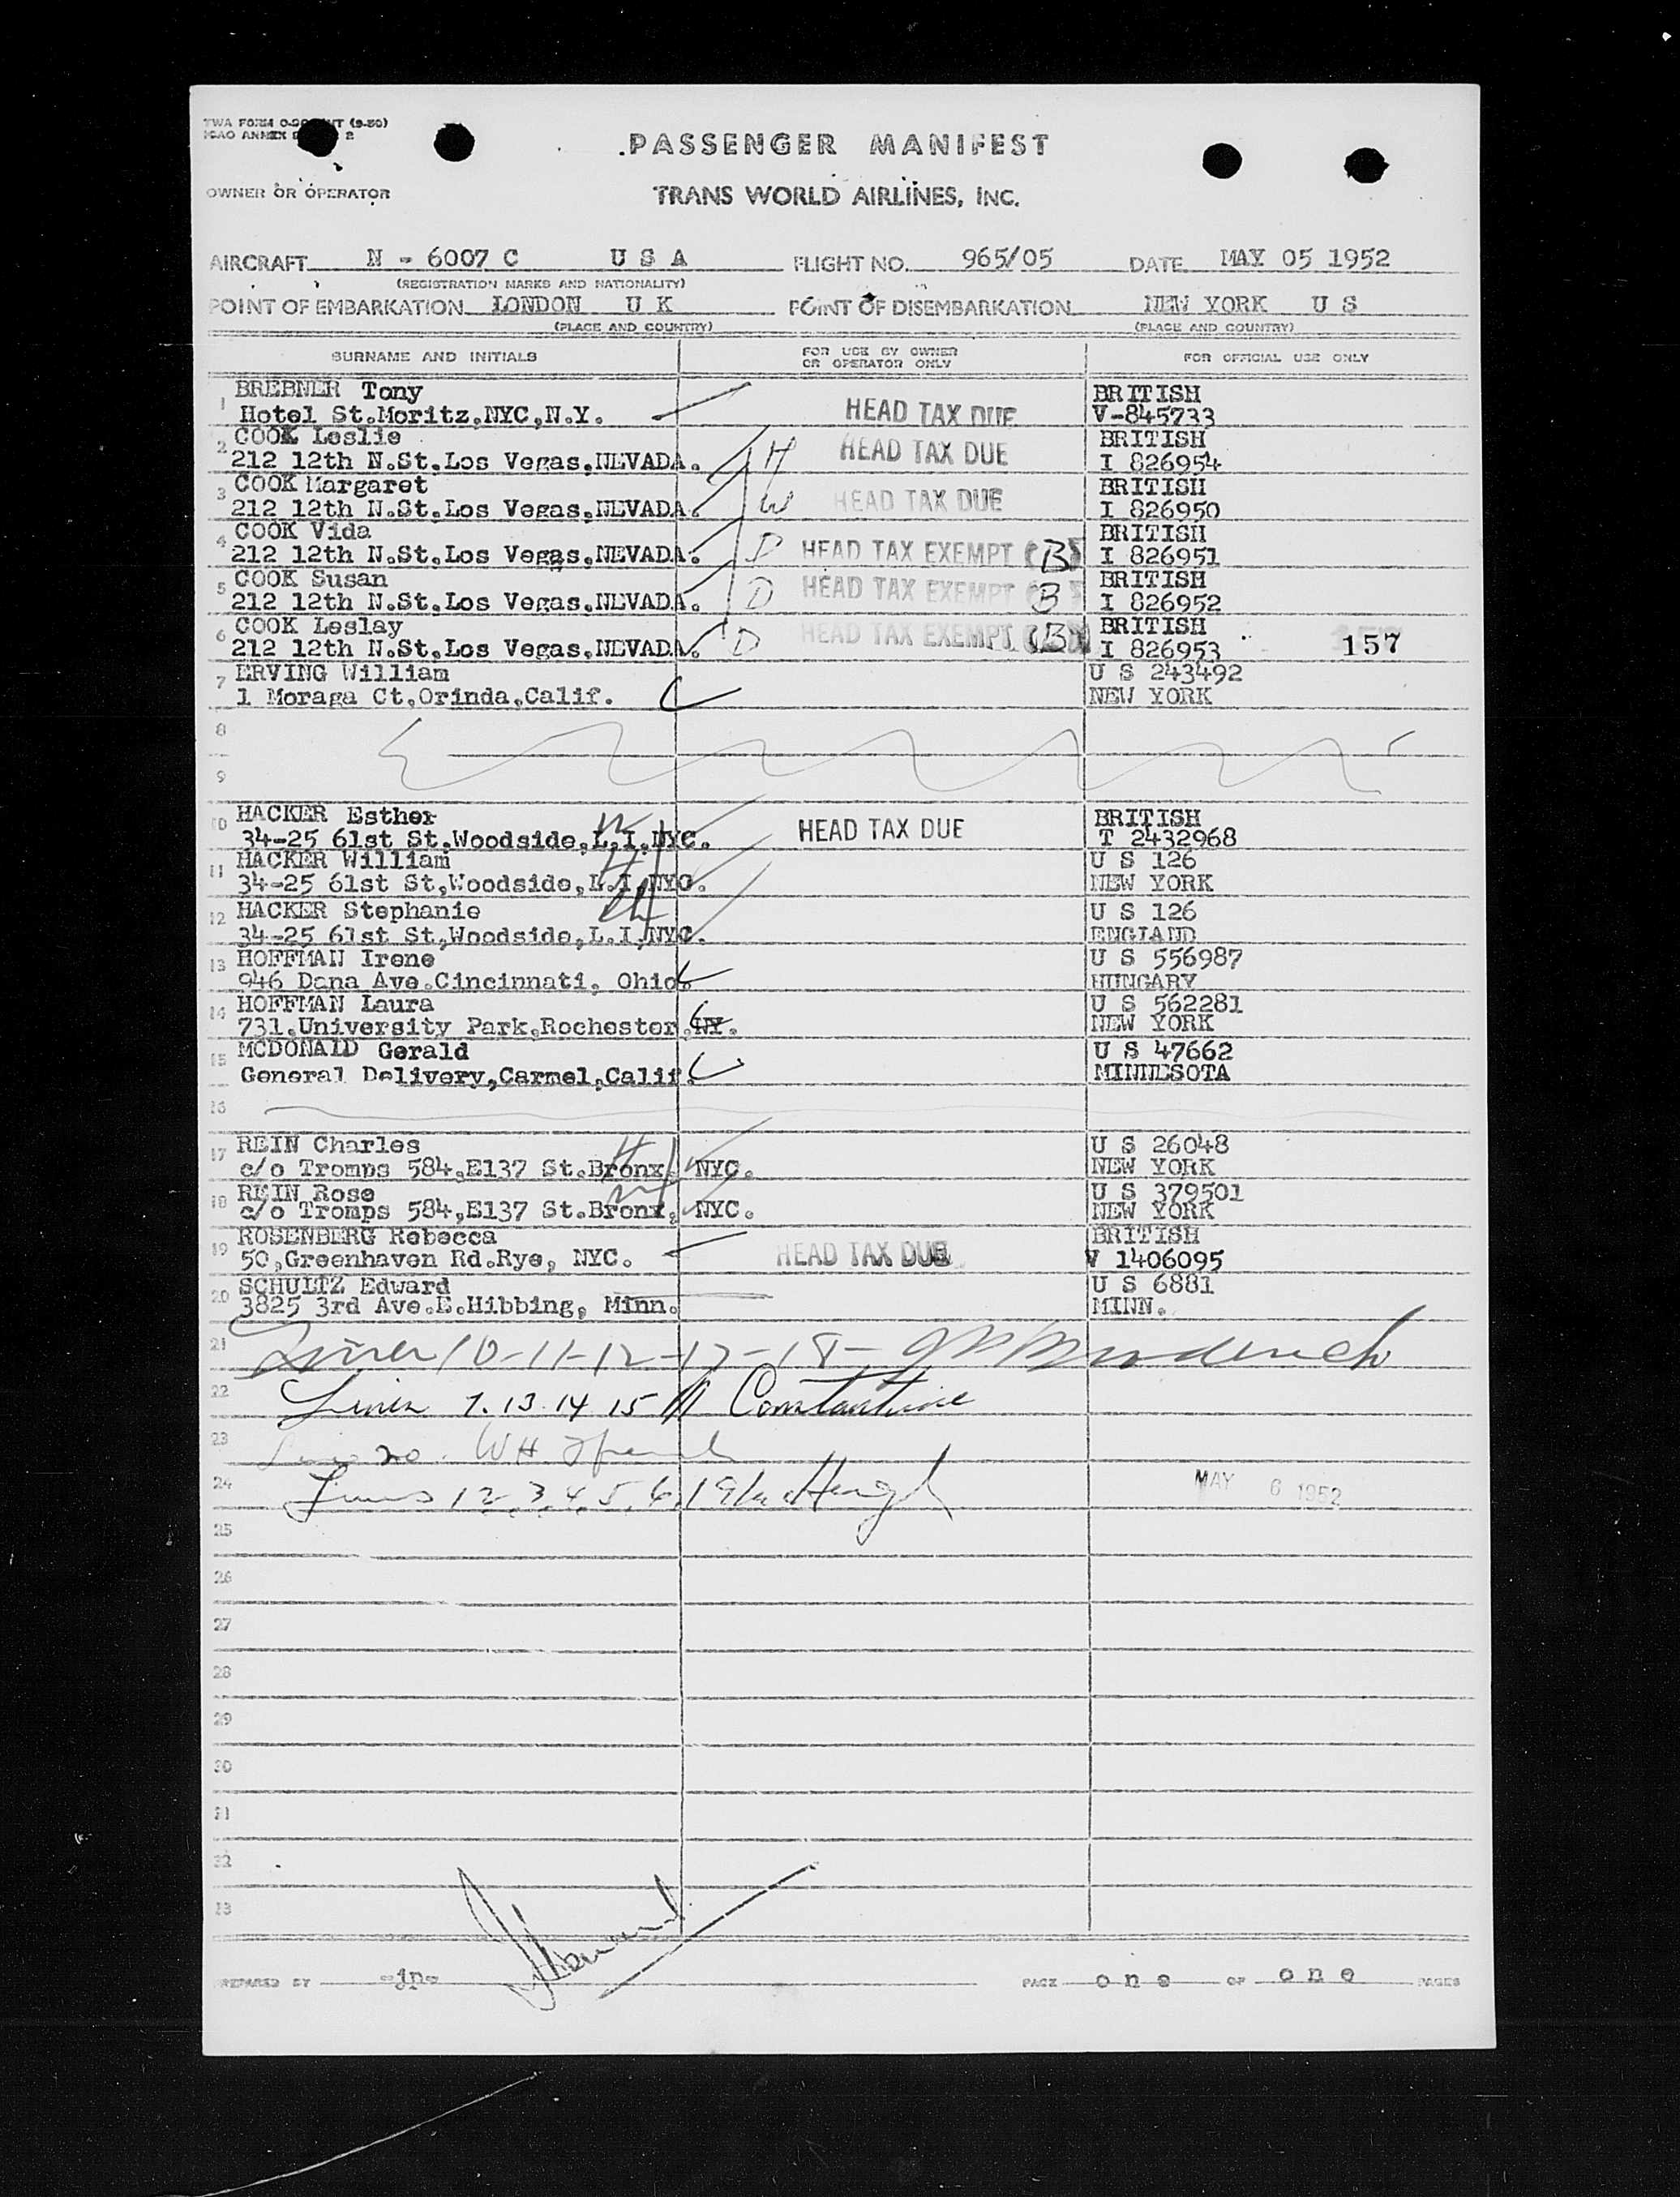 TWA FORM
ICAO ANNEX
(9-50)
2
PASSENGER MANIFEST
OWNER OR OPERATOR
TRANS WORLD AIRLINES, INC.
AIRCRAFT N - 6007 C U S A FLIGHT NO. 965/05 DATE MAY 05 1952
(REGISTRATION MARKS AND NATIONALITY)
POINT OF EMBARKATION LONDON U K POINT OF DISEMBARKATION NEW YORK U S
(PLACE AND COUNTRY) (PLACE AND COUNTRY)
SURNAME AND INITIALS FOR USE BY OWNER OR OPERATOR ONLY FOR OFFICIAL USE ONLY
1 BREBNER Tony BRITISH
Hotel St.Moritz,NYC,N.Y. HEAD TAX DUE V-845733
2 COOK Leslie BRITISH
212 12th N.St.Los Vegas,NEVADA. H HEAD TAX DUE I 826954
3 COOK Margaret BRITISH
212 12th N.St.Los Vegas,NEVADA. W HEAD TAX DUE I 826950
4 COOK Vida BRITISH
212 12th N.St.Los Vegas,NEVADA. D HEAD TAX EXEMPT (B) I 826951
5 COOK Susan BRITISH
212 12th N.St.Los Vegas,NEVADA. D HEAD TAX EXEMPT (B) I 826952
6 COOK Leslay BRITISH
212 12th N.St.Los Vegas,NEVADA. D HEAD TAX EXEMPT (B) I 826953 157
7 ERVING William U S 243492
1 Moraga Ct,Orinda,Calif. NEW YORK
8
9
10 HACKER Esther W BRITISH
34-25 61st St,Woodside,L.I.NYC. HEAD TAX DUE T 2432968
11 HACKER William H U S 126
34-25 61st St,Woodside,L.I,NYC. NEW YORK
12 HACKER Stephanie ch U S 126
34-25 61st St,Woodside,L.I,NYC. ENGLAND
13 HOFFMAN Irene U S 556987
946 Dana Ave.Cincinnati, Ohio. HUNGARY
14 HOFFMAN Laura U S 562281
731,University Park,Rochester,NY. NEW YORK
15 MCDONALD Gerald U S 47662
General Delivery,Carmel,Calif. MINNESOTA
16
17 REIN Charles H U S 26048
c/o Tromps 584,E137 St.Bronx, NYC. NEW YORK
18 REIN Rose W U S 379501
c/o Tromps 584,E137 St.Bronx, NYC. NEW YORK
19 ROSENBERG Rebecca BRITISH
50,Greenhaven Rd.Rye, NYC. HEAD TAX DUE V 1406095
20 SCHULTZ Edward U S 6881
3825 3rd Ave.E.Hibbing, Minn. MINN.
21 Lines 10-11-12-17-18-
22 Lines 7.13.14 15 Constantine
23 20. WH
24 Lines 1 2,3,4,5,6,19 MAY 6 1952
25
26
27
28
29
30
31
32
33
PREPARED BY -jp- PAGE one OF one PAGES